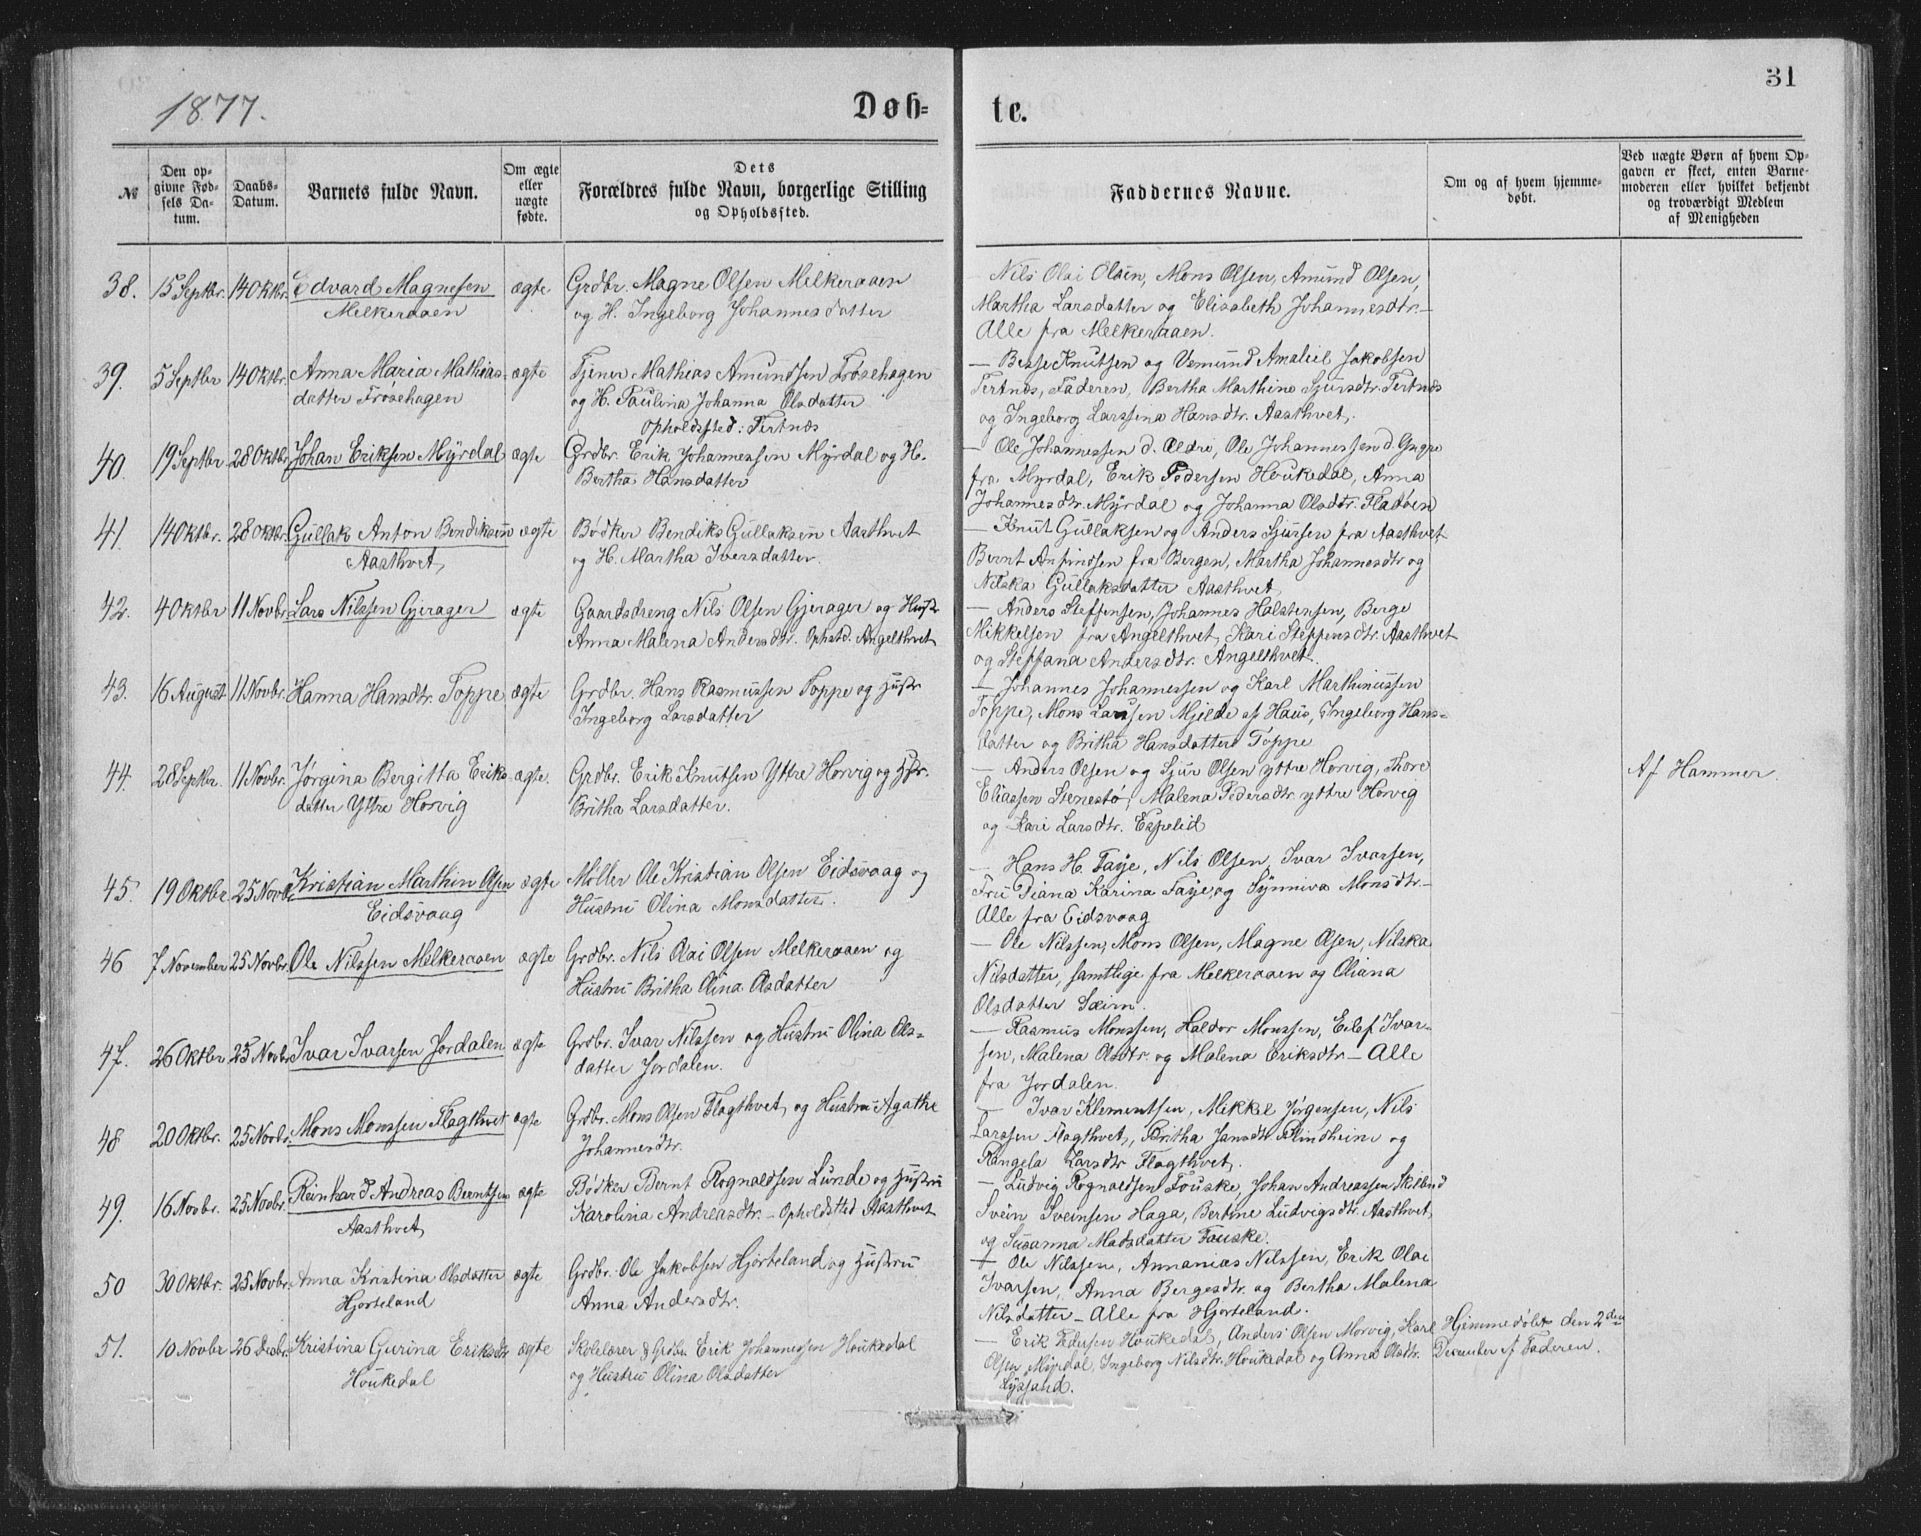 1877.
Døb=
te.
31
№
Den op-
givne Fød-
sels Da-
tum.
Daabs-
Datum.
Barnets fulde Navn.
Om ægte
eller
uægte
fødte.
Dets
Forældres fulde Navn, borgerlige Stilling
og Opholdssted.
Faddernes Navne.
Om og af hvem hjemme-
døbt.
Ved uægte Børn af hvem Op-
gaven er skeet, enten Barne-
moderen eller hvilket bekjendt
og troværdigt Medlem
af Menigheden
38. 15 Septbr. 14 Oktbr. Edvard Magnesen
Melkeraaen
ægte
Grdbr. Magne Olsen Melkeraaen
og H. Ingeborg Johannesdatter
Nils Olai Olsen, Mons Olsen, Amund Olsen,
Martha Larsdatter og Elisabeth Johannesdtr.—
Alle fra Melkeraaen.
39. 5 Septbr 14 Oktbr. Anna Maria Mathias-
datter Frøsehagen
ægte
Tjener Mathias Amundsen Frøsehagen
og H. Paulina Johanna Olsdatter
Opholdssted: Tertnes
— Besse Knutsen og Vemund Amaliel Jakobsen
Tertnes, Faderen, Bertha Marthine Sjursdtr. Tertnes
og Ingeborg Larssena Hansdtr. Aasthvet.
40. 19 Septbr 28 Oktbr. Johan Eriksen Myrdal ægte
Grdbr. Erik Johannessen Myrdal og H.
Bertha Hansdatter
— Ole Johannessen d. Ældre, Ole Johannessen d Yngre
fra Myrdal, Erik Pedersen Houkedal, Anna
Johannesdtr. Myrdal og Johanna Olsdtr. Fladøen
41. 14 Oktbr. 28 Oktbr. Gullak Anton Bendiksen
Aasthvet
ægte
Bødker Bendiks Gullaksen Aasthvet
og H. Martha Iversdatter.
— Knut Gullaksen og Anders Sjursen fra Aasthvet
Bernt Anfindsen fra Bergen, Martha Johannesdtr og
Nilska Gullaksdatter Aasthvet
42. 4 Oktbr 11 Novbr. Lars Nilssen Gjerager ægte
Gaardsdreng Nils Olsen Gjerager og Hustr
Anna Malena Andersdtr. Ophstd. Angelthvet
— Anders Steffensen, Johannes Halstensen, Berge
Mikkelsen fra Angelthvet, Kari Steffensdtr. Aasthvet
og Steffana Andersdtr. Angelthvet.
43. 16 August 11 Novbr. Hanna Hansdtr. Toppe ægte
Grdbr. Hans Rasmussen Toppe og Hustr
Ingeborg Larsdatter
— Johannes Johannessen og Karl Marthinussen
Toppe, Mons Larssen Mjelde af Haus, Ingeborg Hans-
datter og Britha Hansdatter Toppe
44. 28 Septbr. 11 Novbr. Jørgina Bergitta Eriks-
datter Yttre Horvig
ægte
Grdbr. Erik Knutsen Yttre Horvig og Hstr.
Britha Larsdatter.
— Anders Olsen og Sjur Olsen yttre Horvig, Thore
Eliassen Stenestø, Malena Pedersdtr. yttre Horvig
og Kari Larsdtr. Espelid
Af Hammer.
45. 19 Oktbr. 25 Novbr. Kristian Marthin Olsen
Eidsvaag
ægte
Møller Ole Kristian Olsen Eidsvaag og
Hustru Olina Monsdatter.
— Hans H. Faye, Nils Olsen, Ivar Ivarsen,
Fru Diana Karina Faye, og Synniva Monsdtr—
Alle fra Eidsvaag
46 7 November 25 Novbr. Ole Nilssen Melkeraaen ægte
Grdbr. Nils Olai Olsen Melkeraaen og
Hustru Britha Olina Olsdatter
— Ole Nilssen, Mons Olsen, Magne Olsen, Nilska
Nilsdatter, samtlige fra Melkeraaen og Oliana
Olsdatter Sæim.
47. 26 Oktbr 25 Novbr. Ivar Ivarsen Jordalen ægte
Grdbr. Ivar Nilssen og Hustru Olina Ols-
datter Jordalen.
— Rasmus Monssen, Haldor Monssen, Eilef Ivar-
sen, Malena Olsdtr. og Malena Eriksdtr.— Alle
fra Jordalen.
48 20 Oktbr. 25 Novbr. Mons Monssen Flagthvet ægte
Grdbr. Mons Olsen Flagthvet, og Hustru Agathe
Johannesdtr.
— Ivar Klementsen, Mikkel Jørgensen, Nils
Larssen Flagthvet, Britha Jansdtr. Blindheim og
Rangela Larsdtr Flagthvet.
49. 16 Novbr. 25 Novbr. Reinhard Andreas Berntsen
Aasthvet
ægte
Bødker Bernt Rognaldsen Lunde og Hustru
Karolina Andreasdtr.— Opholdsted Aasthvet
— Ludvig Rognaldsen Fouske, Johan Andreassen
Svein Sveinsen Haga, Bertine Ludvigsdtr. Aasthvet
og Susanna Madsdatter Fauske.
50 30 Oktbr. 25 Novbr. Anna Kristina Olsdatter
Hjorteland
ægte
Grdbr. Ole Jakobsen Hjorteland og Hustru
Anna Andersdtr.
— Ole Nilssen, Annanias Nilssen, Erik Olai
Ivarsen, Anna Bergesdtr. og Bertha Malena
Nilsdatter — Alle fra Hjorteland.
51. 10 Novbr 26 Decbr. Kristina Gurina Eriksdtr
Houkedal
ægte
Skolelærer & Grdbr. Erik Johannessen Houkedal
og Hustru Olina Olsdatter
— Erik Pedersen Houkedal, Anders Olsen Morvig, Karl
Olsen Myrdal, Ingeborg Nilsdtr. Houkedal og Anna Olsdtr.
Lyssand.
Hjemmedøbt den 2den
December af Faderen.